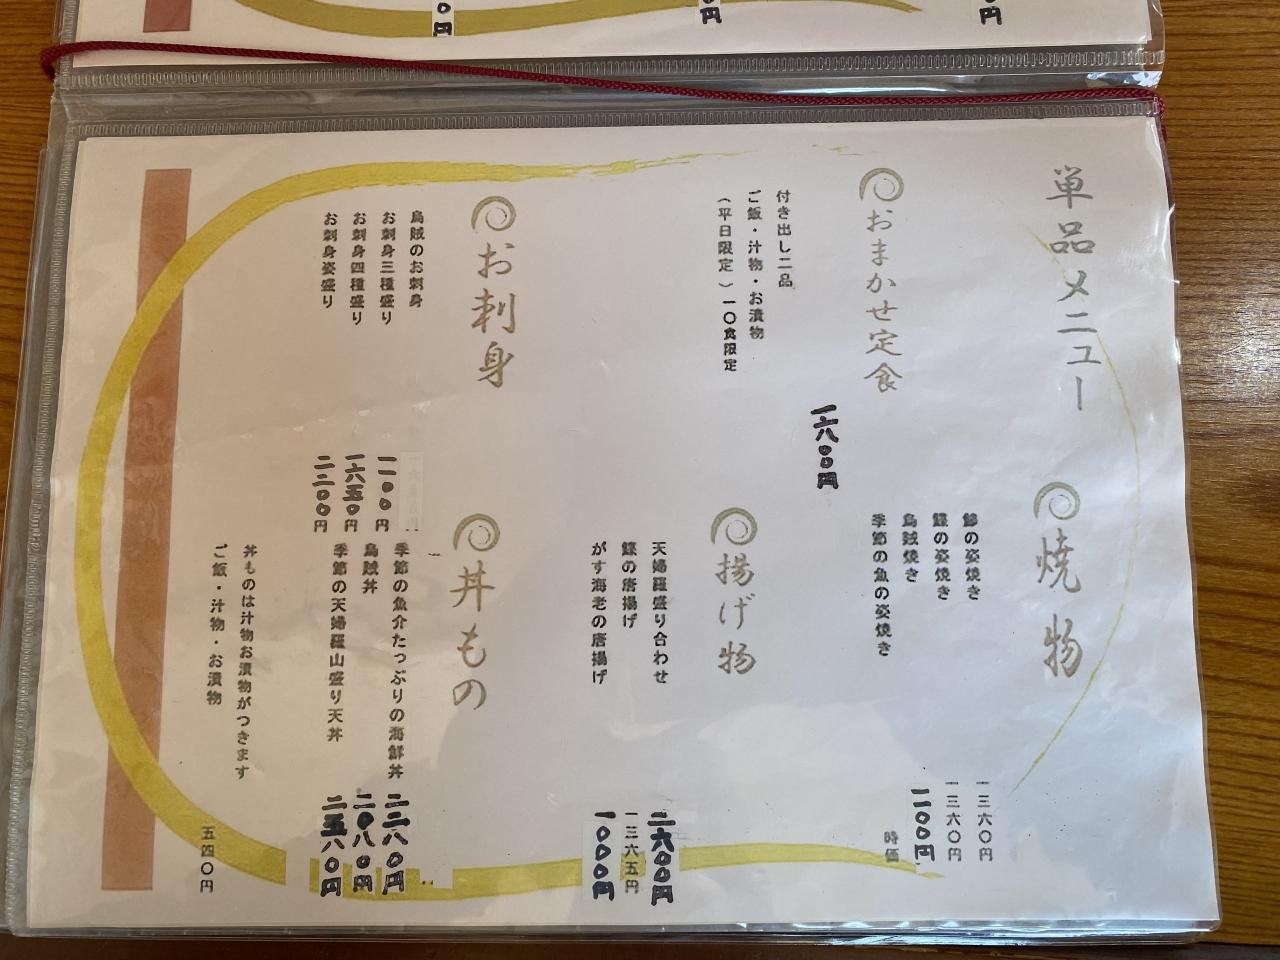 単品メニュー
おまかせ定食
付き出し二品
ご飯・汁物・お漬物
(平日限定)一〇食限定
一六八〇〇円
お刺身
烏賊のお刺身
お刺身三種盛り
一一〇〇円
お刺身四種盛り
一六五〇円
お刺身姿盛り
二二〇〇円
焼物
鯵の姿焼き
一三六〇円
鰈の姿焼き
一三六〇円
烏賊焼き
一一〇〇円
季節の魚の姿焼き
時価
揚げ物
天婦羅盛り合わせ
二六〇〇円
鰈の唐揚げ
一三六五円
がす海老の唐揚げ
一〇〇〇円
丼もの
季節の魚介たっぷりの海鮮丼
二二八〇円
烏賊丼
二〇八〇円
季節の天婦羅山盛り天丼
二五八〇円
丼ものは汁物お漬物がつきます
ご飯・汁物・お漬物
五四〇円